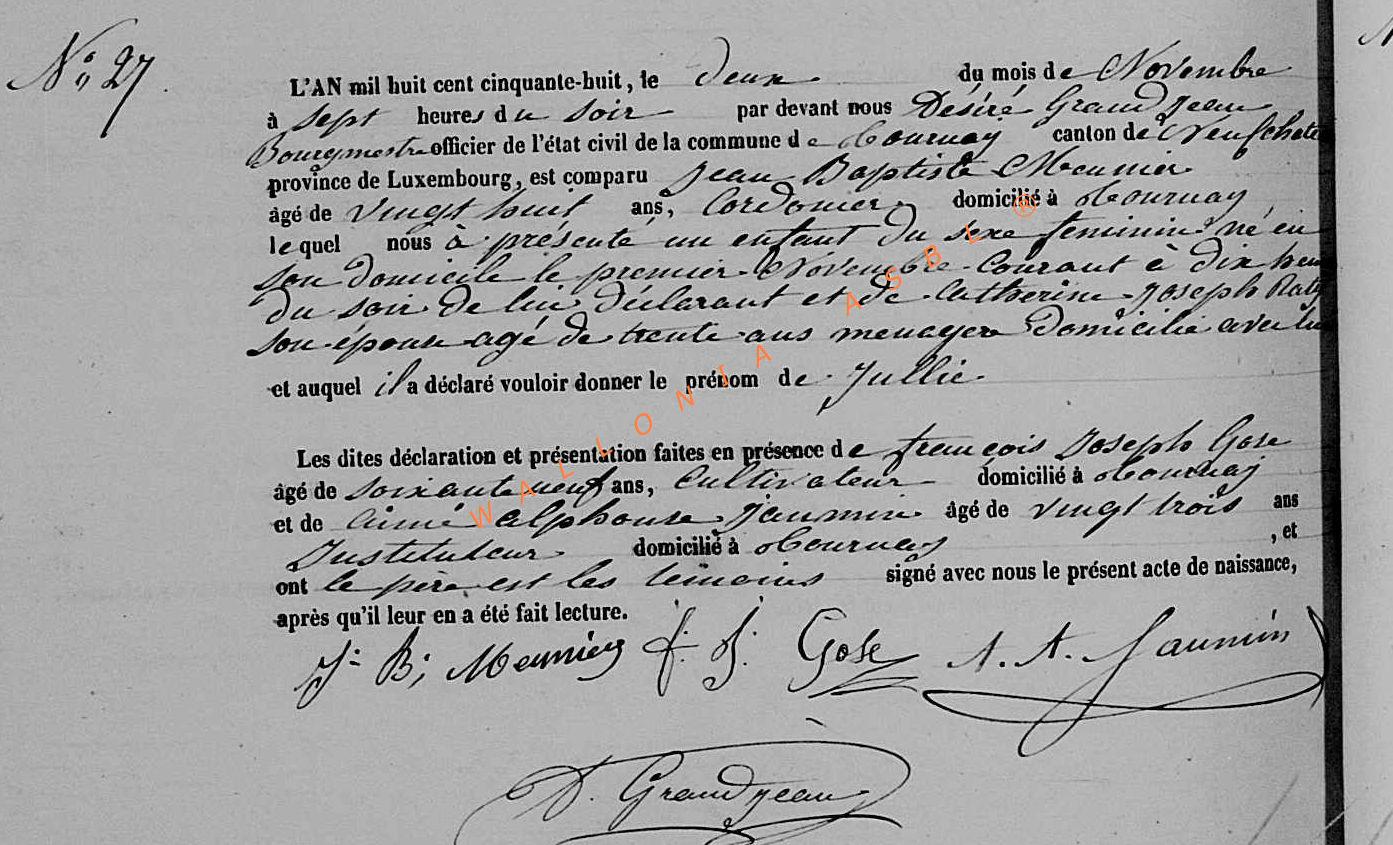 N° 27
L'AN mil huit cent cinquante-huit, le deux du mois de Novembre
à sept heures du soir par devant nous Désiré Grandjean
Bourgmestre officier de l'état civil de la commune de Tournay canton de Neufchate
province de Luxembourg, est comparu Jean Baptiste Meunier
âgé de vingt huit ans, Cordonier domicilié à Tournay
lequel nous à présenté un enfant du sexe feminin né en
son domicile le premier Novembre courant à dix heu
du soir de lui déclarant et de Catherine Joseph
son épouse agé de trente ans menagere domicilié avec lu
et auquel il a déclaré vouloir donner le prénom de Jullie
Les dites déclaration et présentation faites en présence de françois Joseph Gose
âgé de soixante neuf ans, Cultivateur domicilié à Tournay
et de aimé alphonse Jaumin âgé de vingt trois ans
Instituteur domicilié à Tournay , et
ont le père est les témoins signé avec nous le présent acte de naissance,
après qu'il leur en a été fait lecture.
J. B. Meunier f. J. Gose A. A. Jaumin
D. Grandjean
WALLONIA ASBL ®